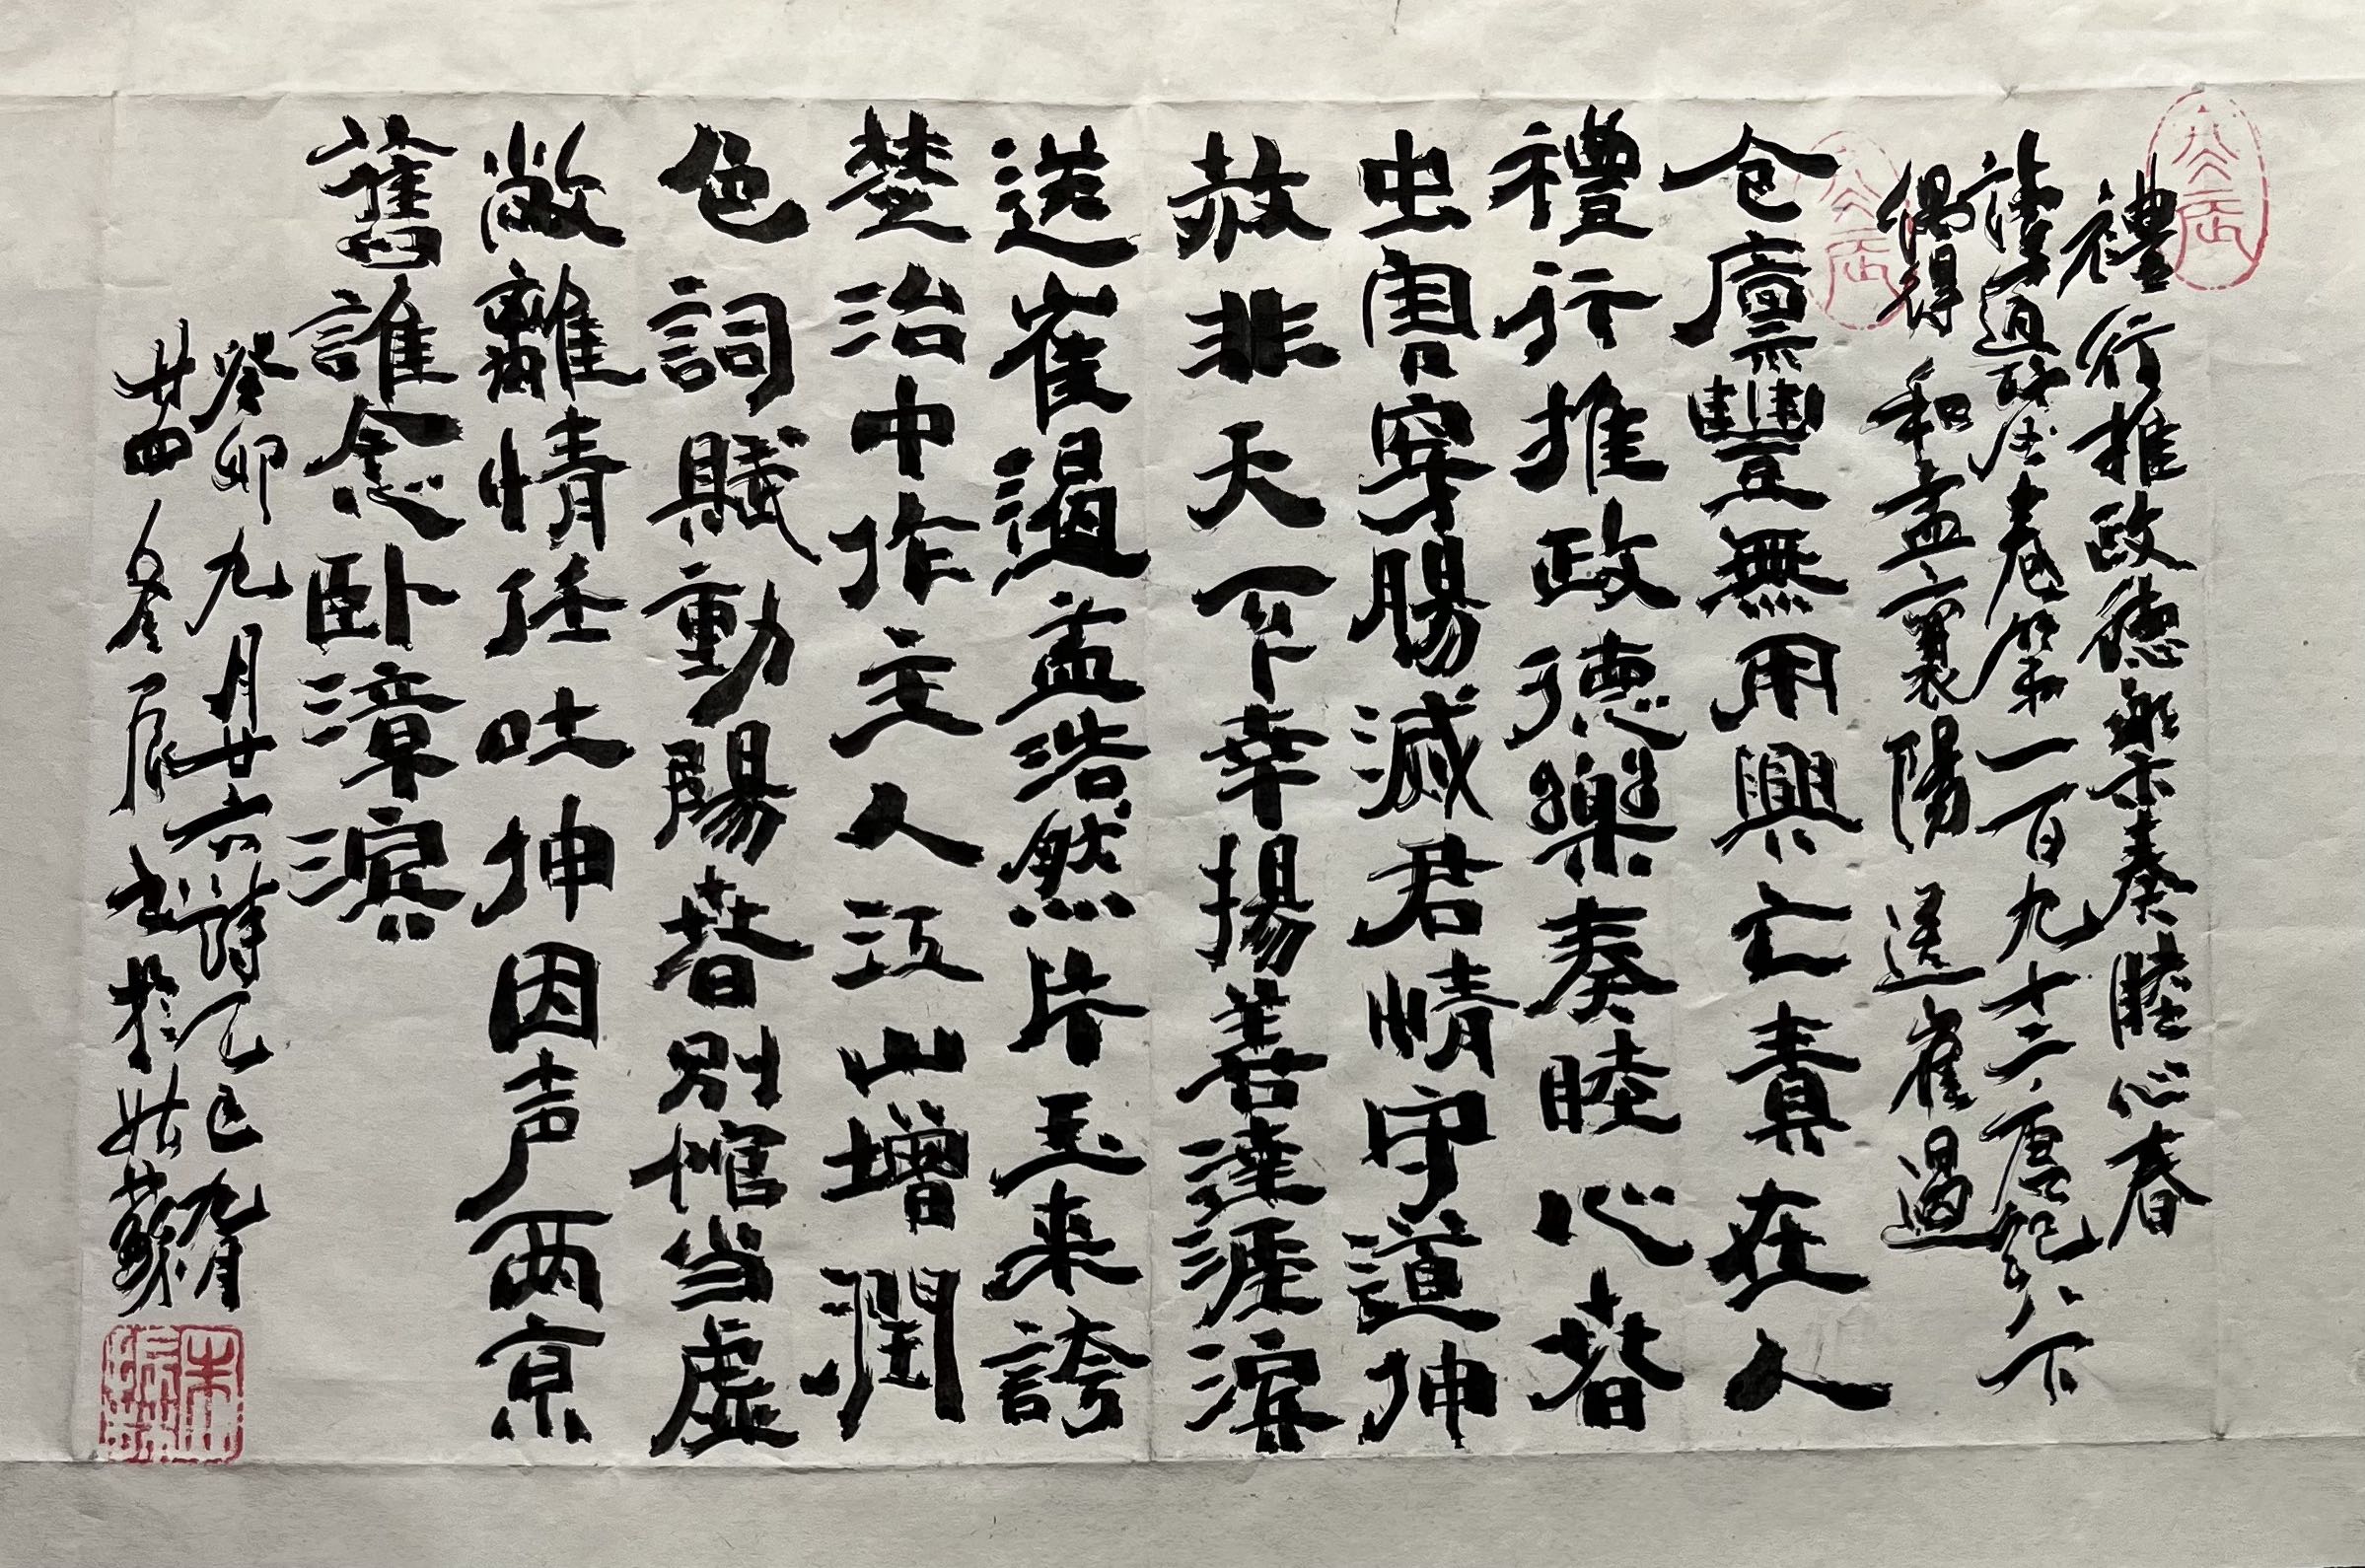 禮行推政德樂奏睦心春
讀通鑒卷第一百九十二唐紀八下
偶得 和孟襄陽 送崔遏
仓廩豐無用興亡責在人
禮行推政德樂奏睦心春
虫害穿腸滅君情守道伸
赦非天下幸揚善達涯濱
送崔遏孟浩然片玉来誇
楚治中作主人江山增潤
色詞賦動陽春別館当虛
敞離情任吐伸因声两京
舊誰念卧漳濱
癸卯九月廿六詩乙巳九月
廿四冬辰书於姑蘇